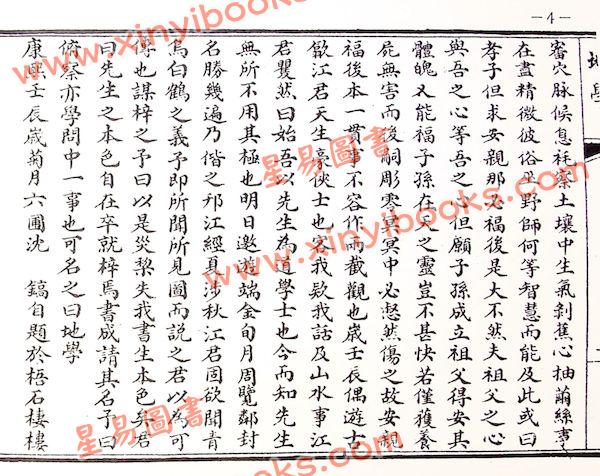 —4—
地學
審穴脉候息耗察土壤中生氣剝蕉心抽繭絲事
在盡精微彼俗巫野師何等智慧而能及此或曰
孝子但求安親那必福後是大不然夫祖父之心
與吾之心等吾之心但願子孫成立祖父得安其
體魄又能福子孫在天之靈豈不甚快若僅獲養
屍無害而後嗣彫零冥冥中必愀然傷之故安親
福後本一貫事不容作兩截觀也歲壬辰偶遊古
歙江君天生豪俠士也客我欵我話及山水事江
君瞿然曰始吾以先生為道學士也今而知先生
無所不用其極也明日邀遊端金旬月周覽鄰封
名勝幾遍乃偕之邗江經真涉秋江君固欲聞青
烏白鶴之義予即所聞所見圖而説之君以為可
傳也謀梓之予曰以是災梨失我書生本色矣君
曰先生之本色自在卒就梓焉書成請其名予曰
俯察亦學問中一事也可名之曰地學
康熙壬辰歲菊月六圃沈 鎬自題於梧石棲樓
www.xinyibooks.com
星易圖書
www.xinyibooks.com
星易圖書
www.xinyibooks.com
星易圖書